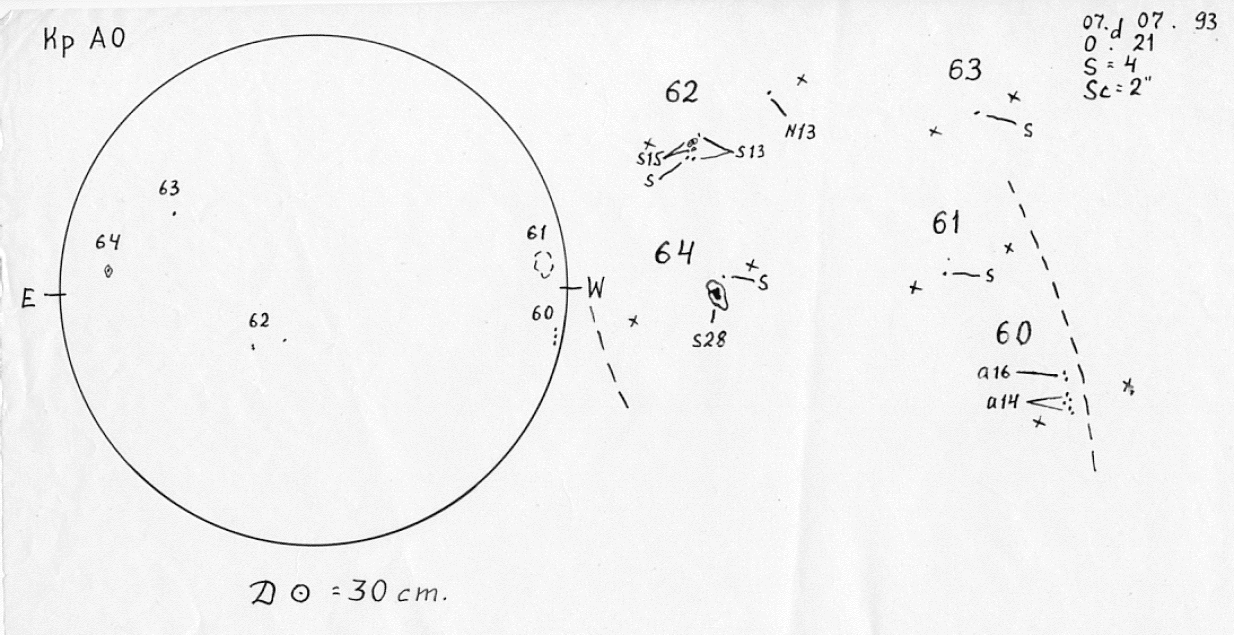 Кр АО
07.d 07 . 93
0 . 21
S = 4
Sc = 2"
63
64
61
E
W
62
60
62
N13
S15
S13
S
64
S
S28
63
S
61
S
60
a16
a14
D ⊙ = 30 cm.